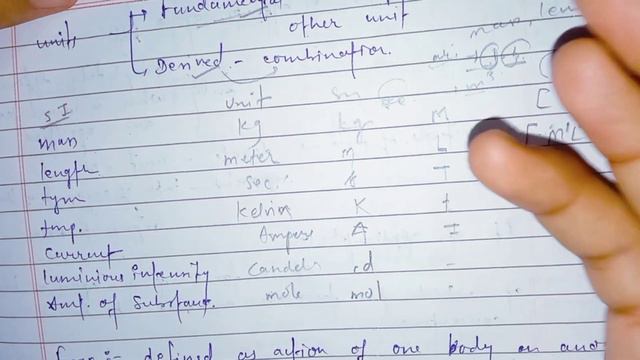 Fundamental
other unit
units
Derived - combination.
SI unit
mass kg kg M [
length meter m L [M'L
tym sec. T
tmp. Kelvin K t
Current Ampere A I
luminious intensity Candela cd -
Amt. of Substanc. mole mol
defined as action of one body on